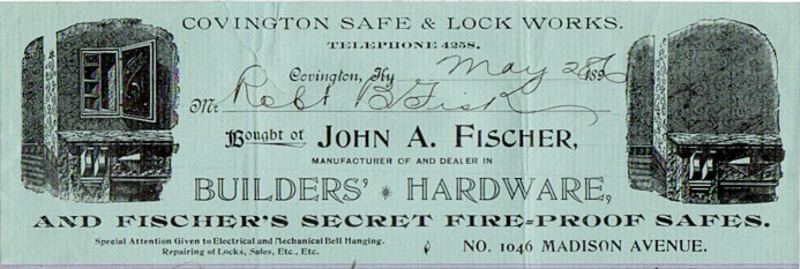 COVINGTON SAFE & LOCK WORKS.
TELEPHONE 4258.
Covington, Ky May 28 1896
Mr Robt B Fisk
Bought of JOHN A. FISCHER,
MANUFACTURER OF AND DEALER IN
BUILDERS' * HARDWARE,
AND FISCHER'S SECRET FIRE=PROOF SAFES.
Special Attention Given to Electrical and Mechanical Bell Hanging.
Repairing of Locks, Safes, Etc., Etc.
NO. 1046 MADISON AVENUE.